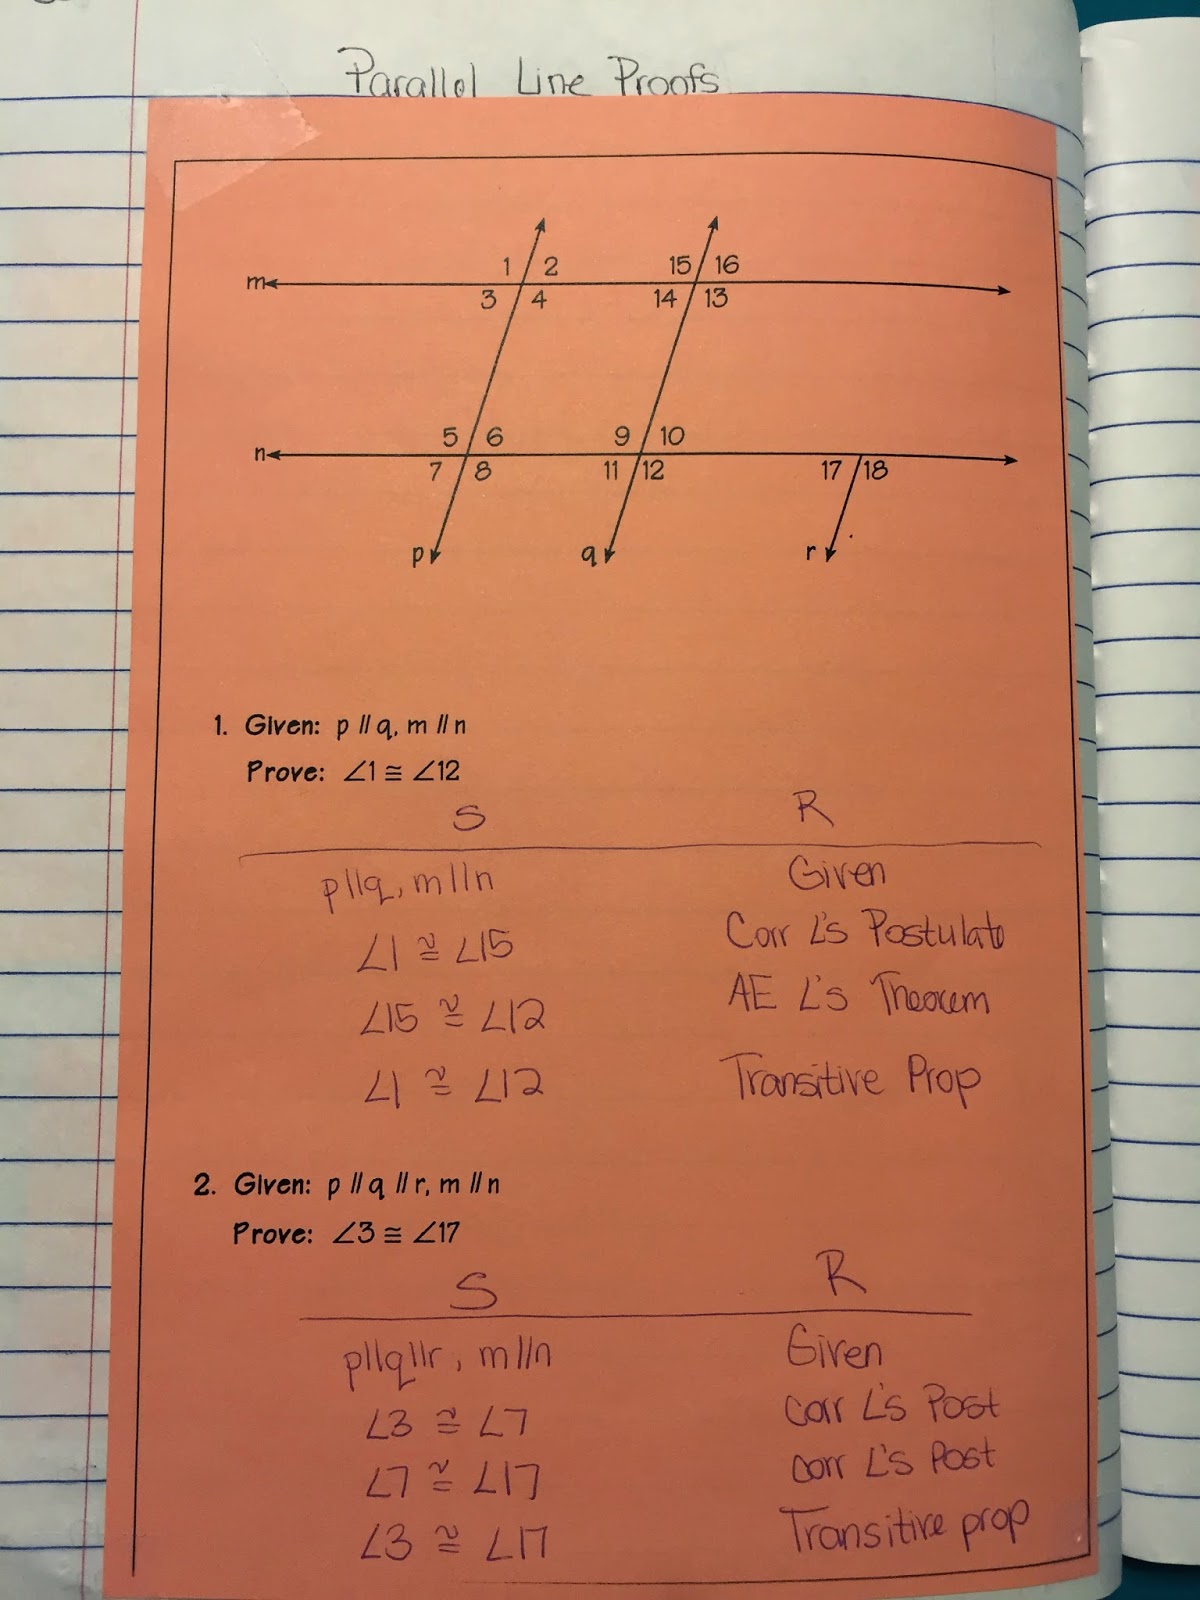 Parallel Line Proofs
1 2 15 16
m
3 4 14 13
5 6 9 10
n
7 8 11 12 17 18
p q r
1. Given: p // q, m // n
Prove: ∠1 ≅ ∠12
S R
p||q, m||n Given
∠1 ≅ ∠15 Corr ∠'s Postulate
∠15 ≅ ∠12 AE ∠'s Theorem
∠1 ≅ ∠12 Transitive Prop
2. Given: p // q // r, m // n
Prove: ∠3 ≅ ∠17
S R
p||q||r, m||n Given
∠3 ≅ ∠7 Corr ∠'s Post
∠7 ≅ ∠17 corr ∠'s Post
∠3 ≅ ∠17 Transitive prop